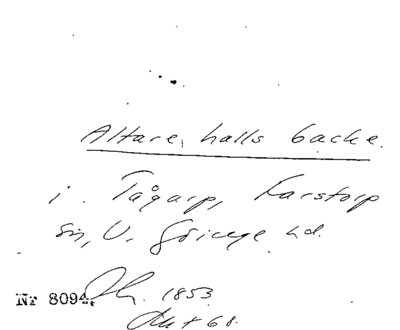 Altare, halls backe.
i Tågarp, Karstorp
sn, V. Göinge hd.
Nr 8094. 1853